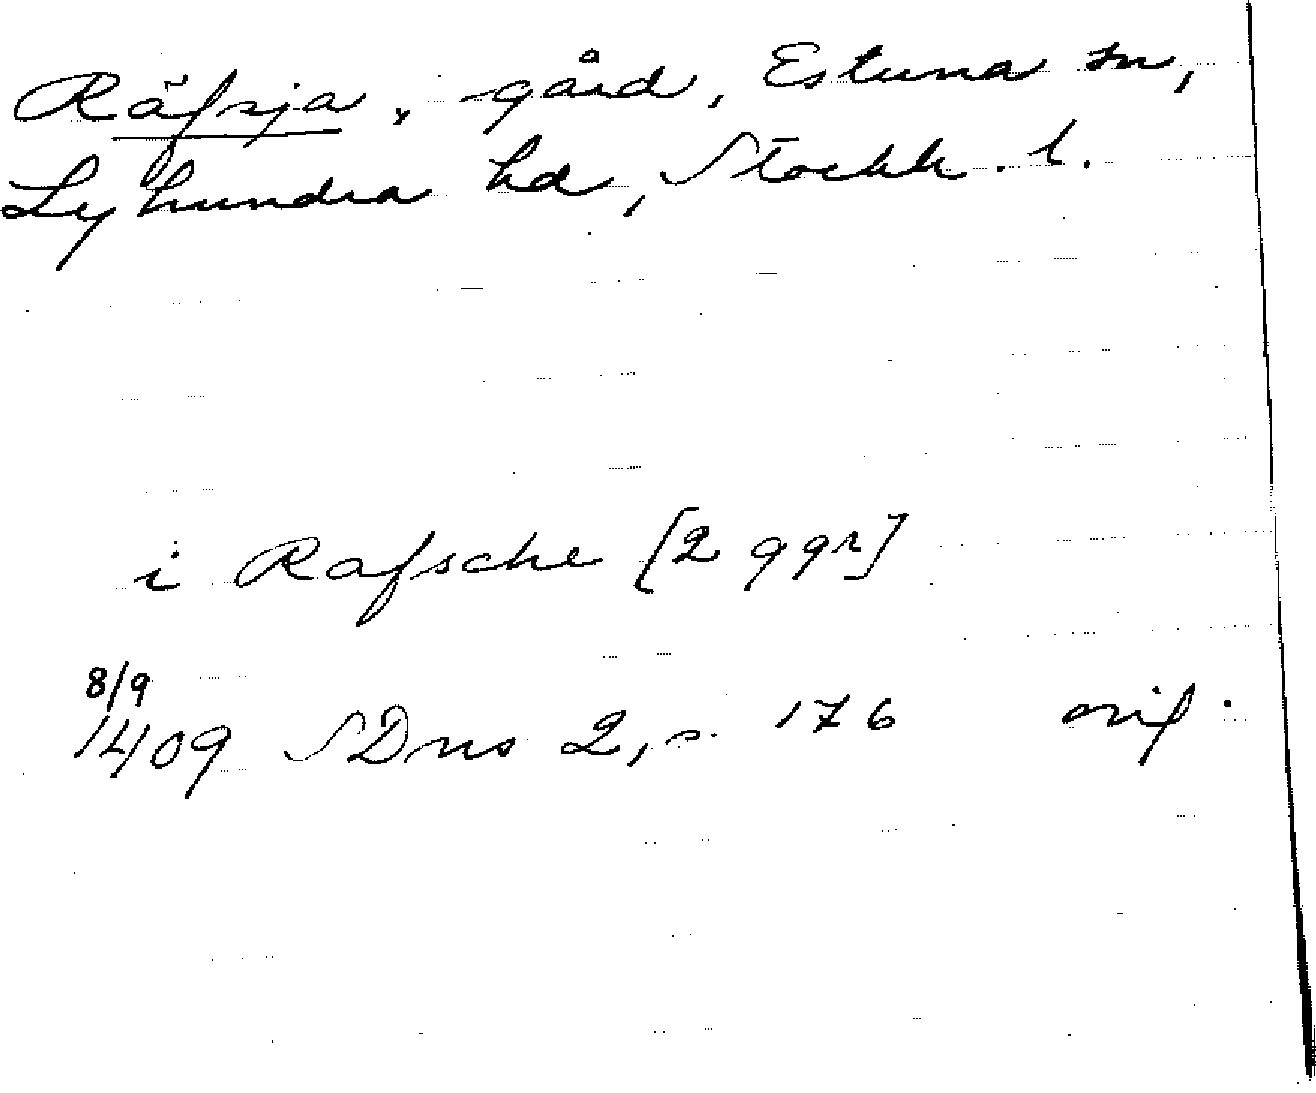 Räfsja, gård, Estuna sn,
Lyhundra hd, Stockh. l.
i Rafsche [2 ggr]
8/9
1409 SDns 2, s. 176 orig.